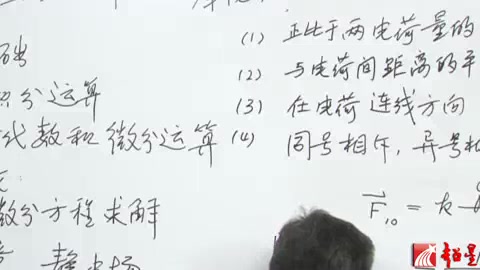 础
积分运算
代数和微分运算
微分方程求解
静电场
(1) 正比于两电荷量的
(2) 与电荷间距离的平
(3) 在电荷连线方向
(4) 同号相斥，异号相
F₁₀ = k